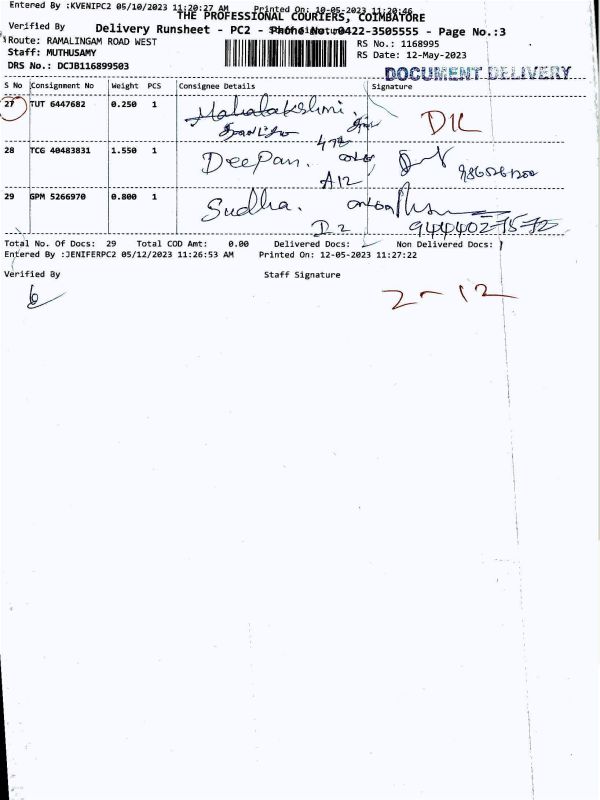 Entered By :KVENIPC2 05/10/2023 11:20:27 AM Printed On: 10-05-2023 11:20:46
THE PROFESSIONAL COURIERS, COIMBATORE
Verified By
Delivery Runsheet - PC2 - Phone No: 0422-3505555 - Page No.:3
Route: RAMALINGAM ROAD WEST
RS No.: 1168995
Staff: MUTHUSAMY
RS Date: 12-May-2023
DRS No.: DCJB116899503
DOCUMENT DELIVERY
S No Consignment No Weight PCS Consignee Details Signature
27 TUT 6447682 0.250 1 Mahalakshmi. D1L
28 TCG 40483831 1.550 1 Deepan.
A12
29 GPM 5266970 0.800 1 Sudha.
D2 9444027572
Total No. Of Docs: 29 Total COD Amt: 0.00 Delivered Docs: Non Delivered Docs:
Entered By :JENIFERPC2 05/12/2023 11:26:53 AM Printed On: 12-05-2023 11:27:22
Verified By Staff Signature
2-12